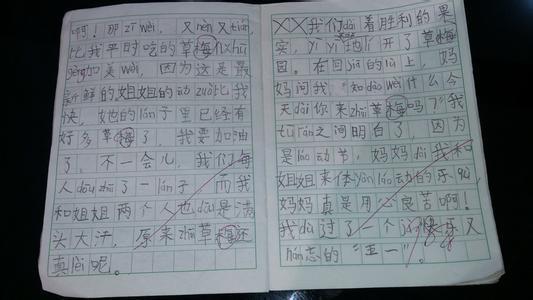 啊！那zī wèi，又nèn又tián，
比我平时吃的草梅
加美wèi，因为这是最
新鲜的姐姐的动zuò比我
快，她的lán子里已经有
好多草梅了，我要加油
了，不一会儿，我们每
人dōu zhāi了一lán子，而我
和姐姐两个人也dōu是满
头大汗，原来zhāi草梅还
真lèi呢。
我们dài着胜利的果
实，yī yī 地lí开了草梅
园。在回jiā的lù上，妈
妈问我："知dào wèi什么今
天dài你来zhāi草梅吗？"我
tū rán之间明白了，因为
是láo动节，妈妈dài我和
姐姐来体yàn láo动的乐qù，
妈妈真是用心良苦啊！
我dù过了一个快乐又
nán忘的"五一"。